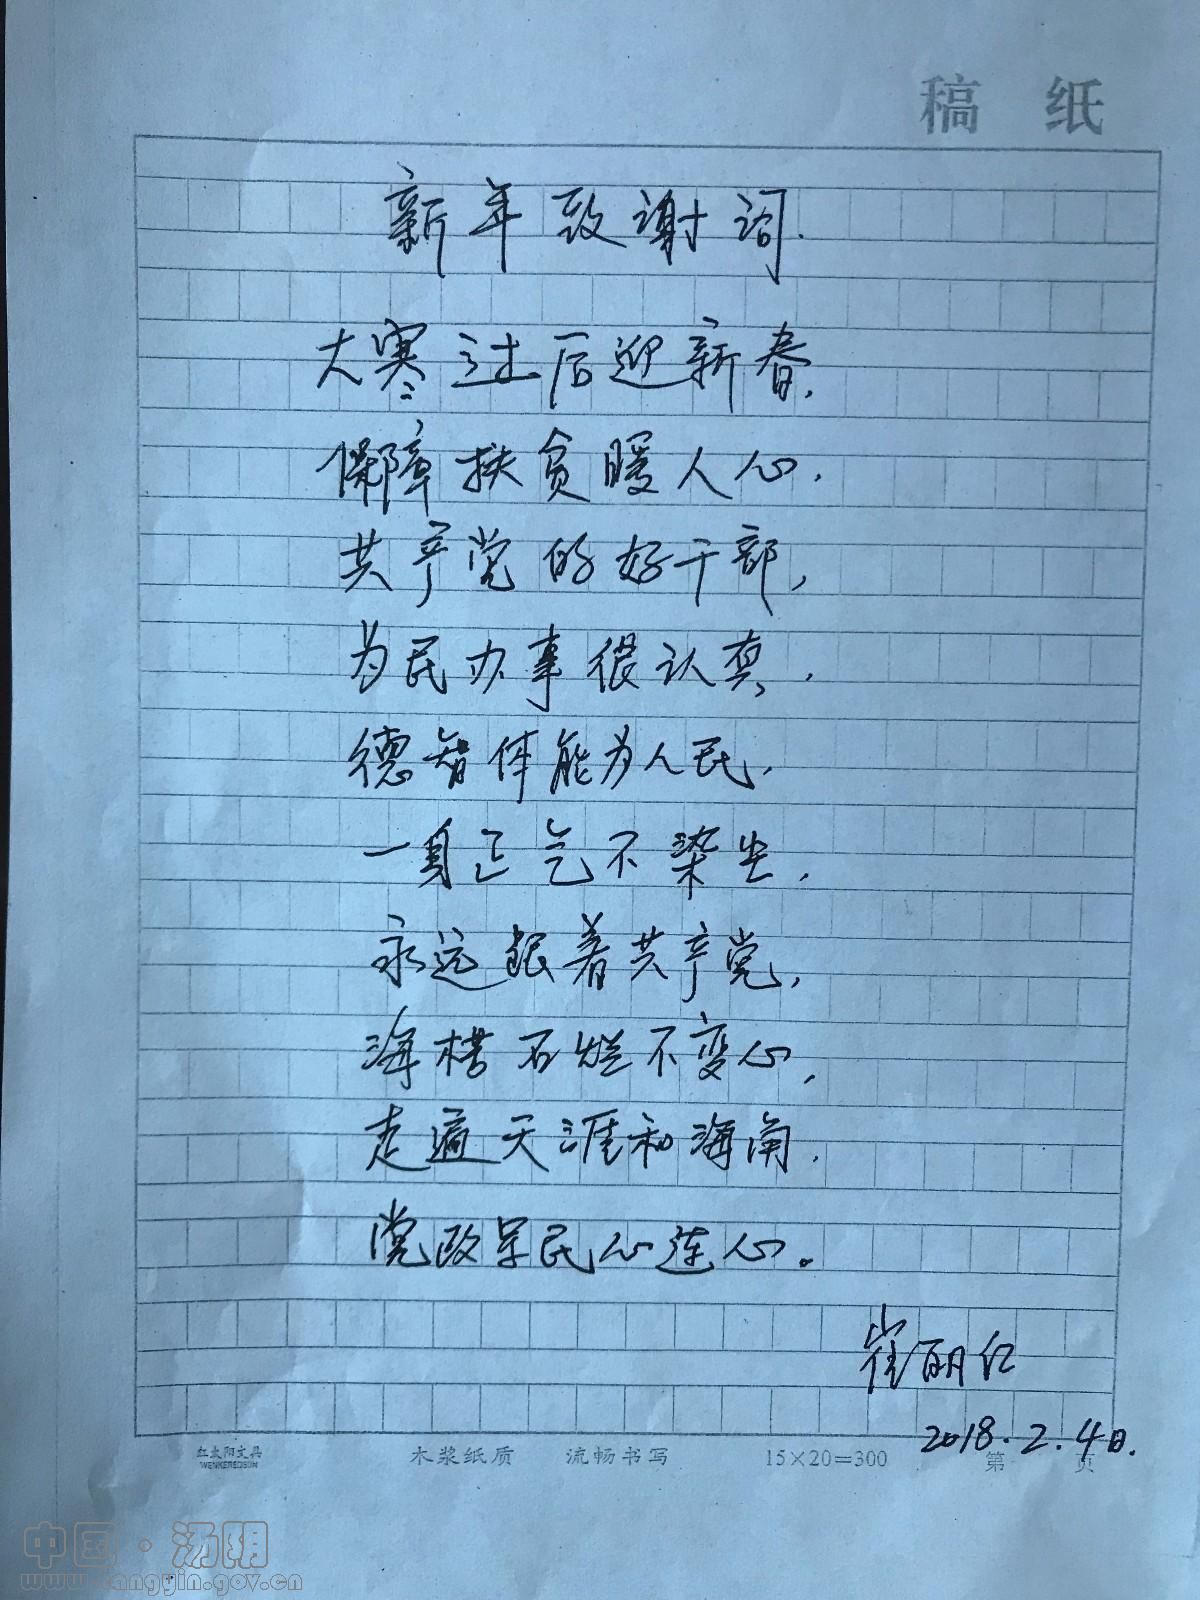 稿 纸
新年致谢词.
大寒过后迎新春,
保障扶贫暖人心.
共产党的好干部,
为民办事很认真.
德智体能为人民.
一身正气不染尘.
永远跟着共产党,
海枯石烂不变心,
走遍天涯和海角.
党政军民心连心。
崔丽红
2018.2.4日.
红太阳文具 木浆纸质 流畅书写 15×20=300 第 页
WENKEREDSUN
中国·汤阴
www.tangyin.gov.cn